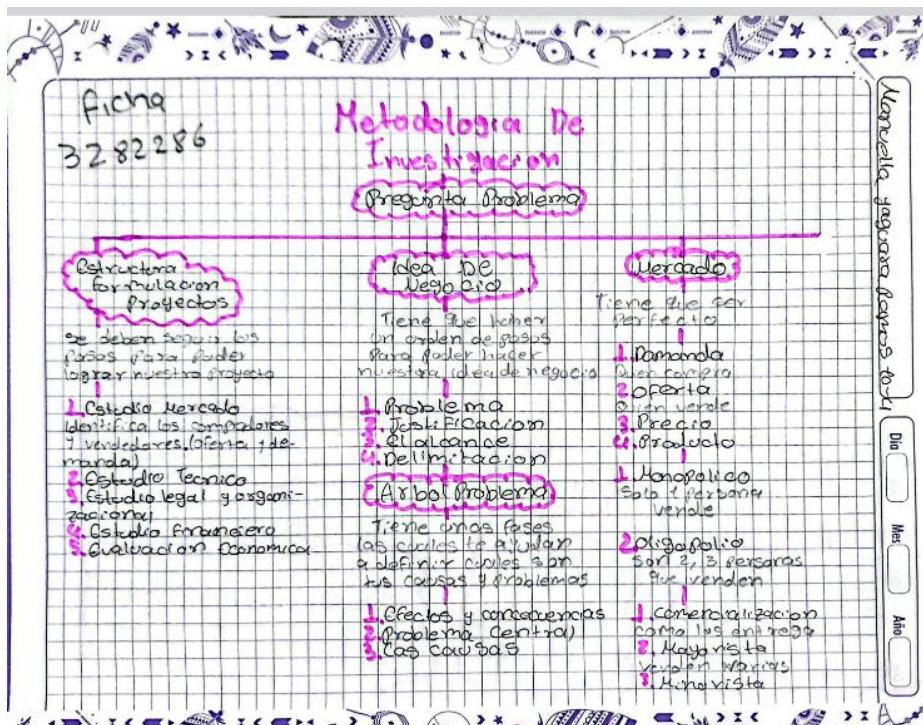 Ficha
3282286
Metodologia De
Investigacion
Pregunta Problema
Estructura
formulacion
Proyectos
se deben seguir los
Pasos Para Poder
lograr nuestro Proyecto
1. Estudio Mercado
identifica los compradores
y vendedores. (oferta y de-
manda)
2. Estudio Tecnico
3. Estudio legal y organi-
zacional
4. Estudio financiero
5. Evaluacion Economica
Idea DE
Negocio
Tiene que haber
un orden de pasos
Para Poder hacer
nuestra idea de negocio
1. Problema
2. Justificacion
3. El alcance
4. Delimitacion
Arbol Problema
Tiene unas fases
las cuales te ayudan
a definir cuales son
tus causas y problemas
1. Efectos y concecuencias
2. Problema Central
3. Las causas
Mercado
Tiene que ser
Perfecto
1. Damanda
Quien compra
2. oferta
Quien vende
3. Precio
4. Producto
1. Monopolico
Solo 1 persona
vende
2. Oligopolio
son 2, 3 personas
que venden
1. Comercialización
como los entrega
2. Mayorista
venden varias
3. Minorista
Manuella yaguara Ramos
Día
Mes
Año